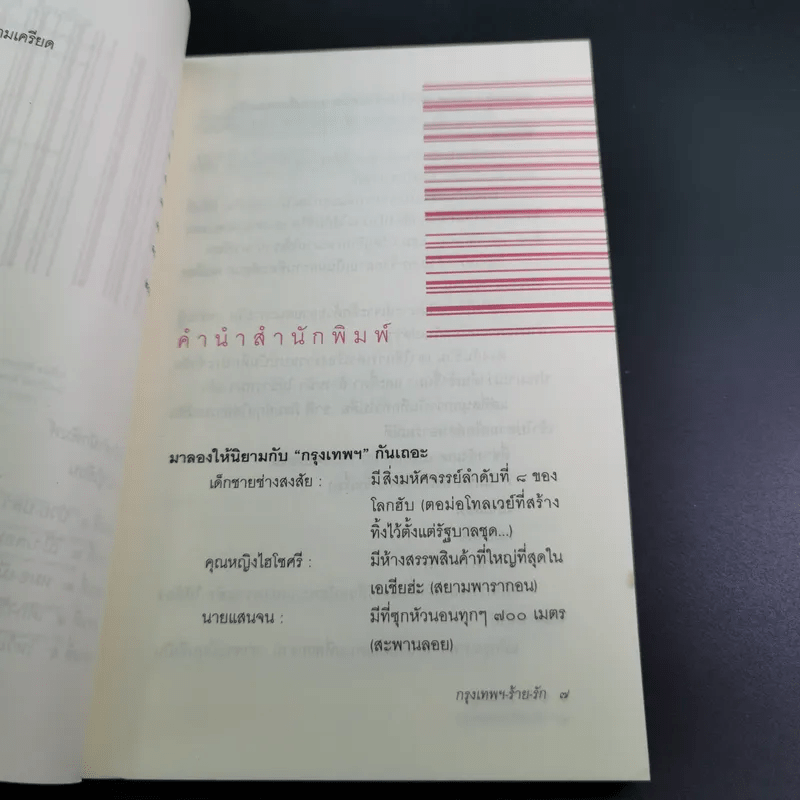 ามเครียด
คำนำสำนักพิมพ์
มาลองให้นิยามกับ “กรุงเทพฯ” กันเถอะ
เด็กชายช่างสงสัย : มีสิ่งมหัศจรรย์ลำดับที่ ๘ ของ
โลกฮับ (ตอม่อโทลเวย์ที่สร้าง
ทิ้งไว้ตั้งแต่รัฐบาลชุด...)
คุณหญิงไฮโซศรี : มีห้างสรรพสินค้าที่ใหญ่ที่สุดใน
เอเชียฮ่ะ (สยามพารากอน)
นายแสนจน : มีที่ซุกหัวนอนทุกๆ ๗๐๐ เมตร
(สะพานลอย)
กรุงเทพฯ-ร้าย-รัก ๗